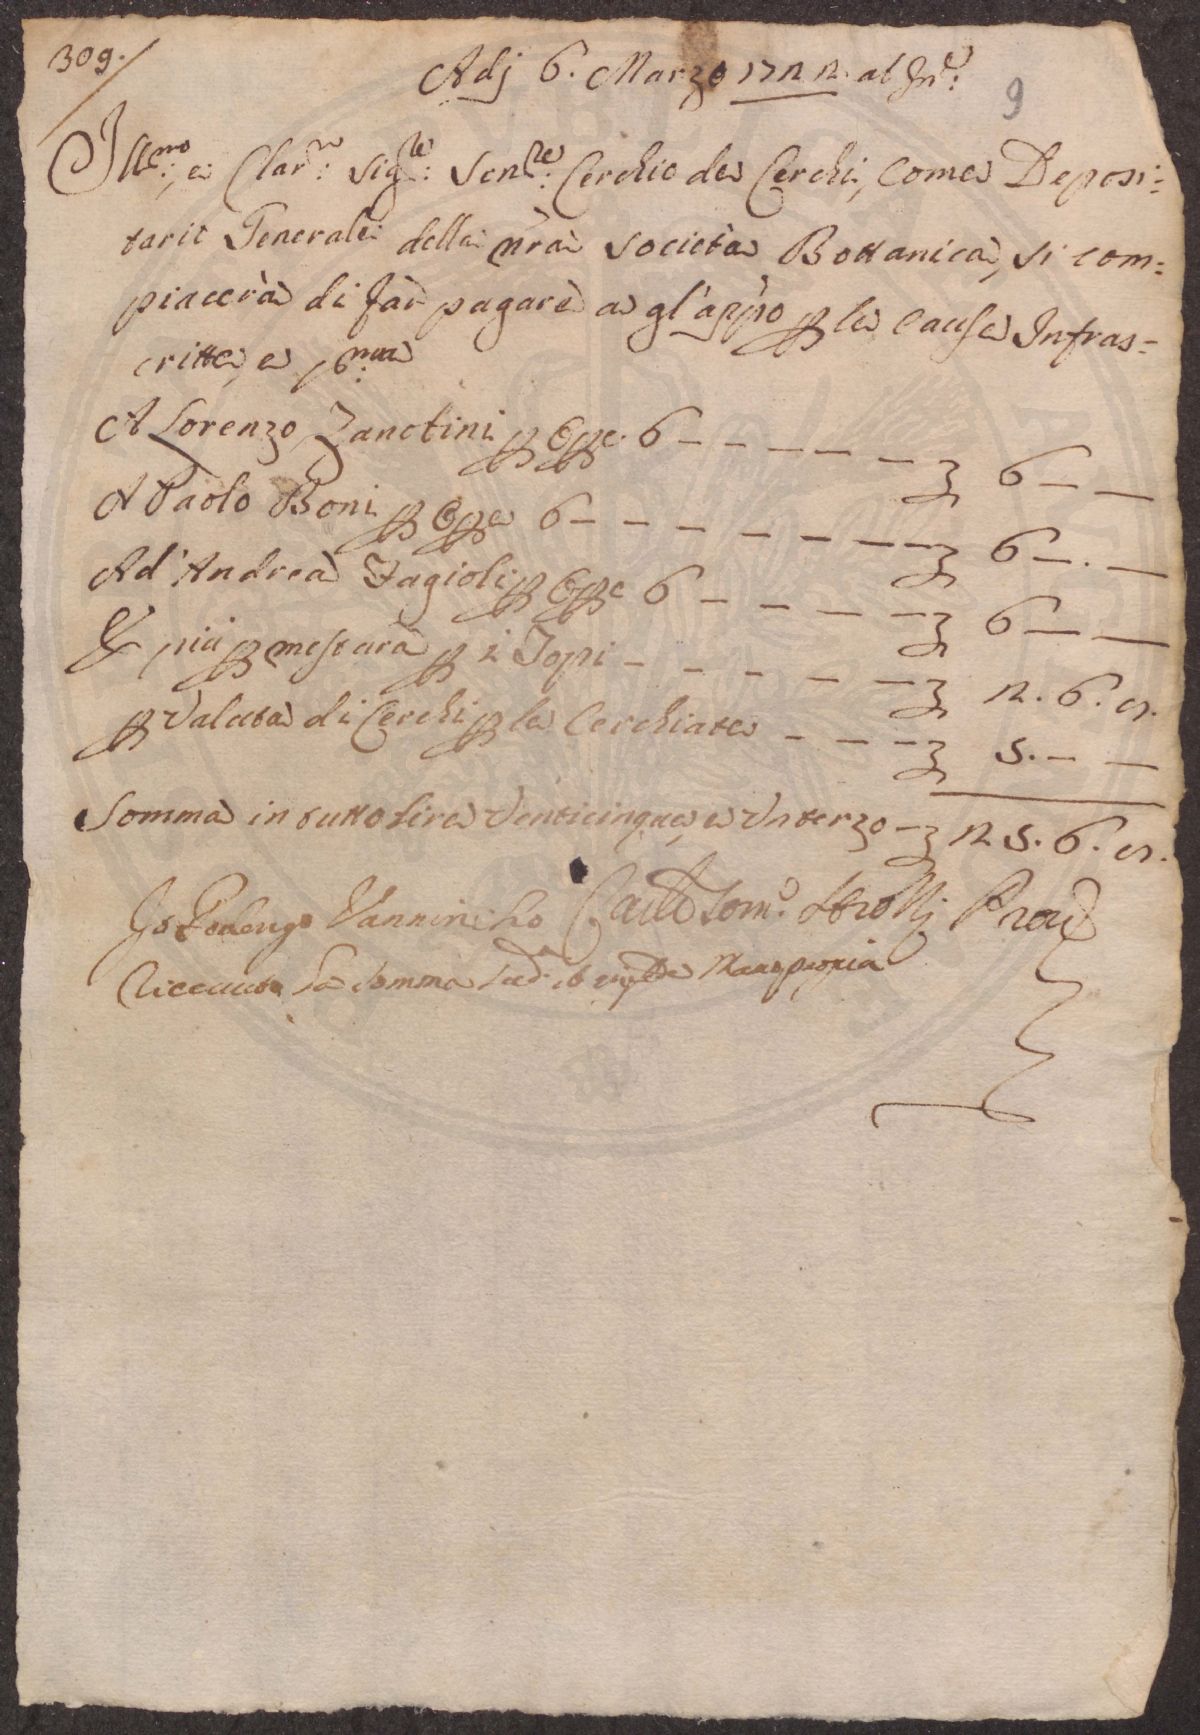 309.
Adj 6. Marzo 1722. ab Inc:
9
Ill:mo, e Clar:mo Sig:re Sen:re Cerchio de Cerchi, come Deposi=
tario Generale della nra Società Bottanica, si com=
piacerà di far pagare a gl'appo p la causa Infras=
critta, e p:ma
A Lorenzo Zanobini p Ope 6 - - - - - 6 — —
A Paolo Boni p Opе 6 - - - - - - 6 — . —
Ad' Andrea Fagioli p Ope 6 - - - - - 6 — —
E più p mestura p i Topi - - - - - - 2. 6. 8.
p Valuta di Cerchi p le Cerchiate - - - 5. — —
Somma in tutto lire Venticinque e Un terzo - 25. 6. 8.
Io Vannini ho
Riceuto la somma Mano propria